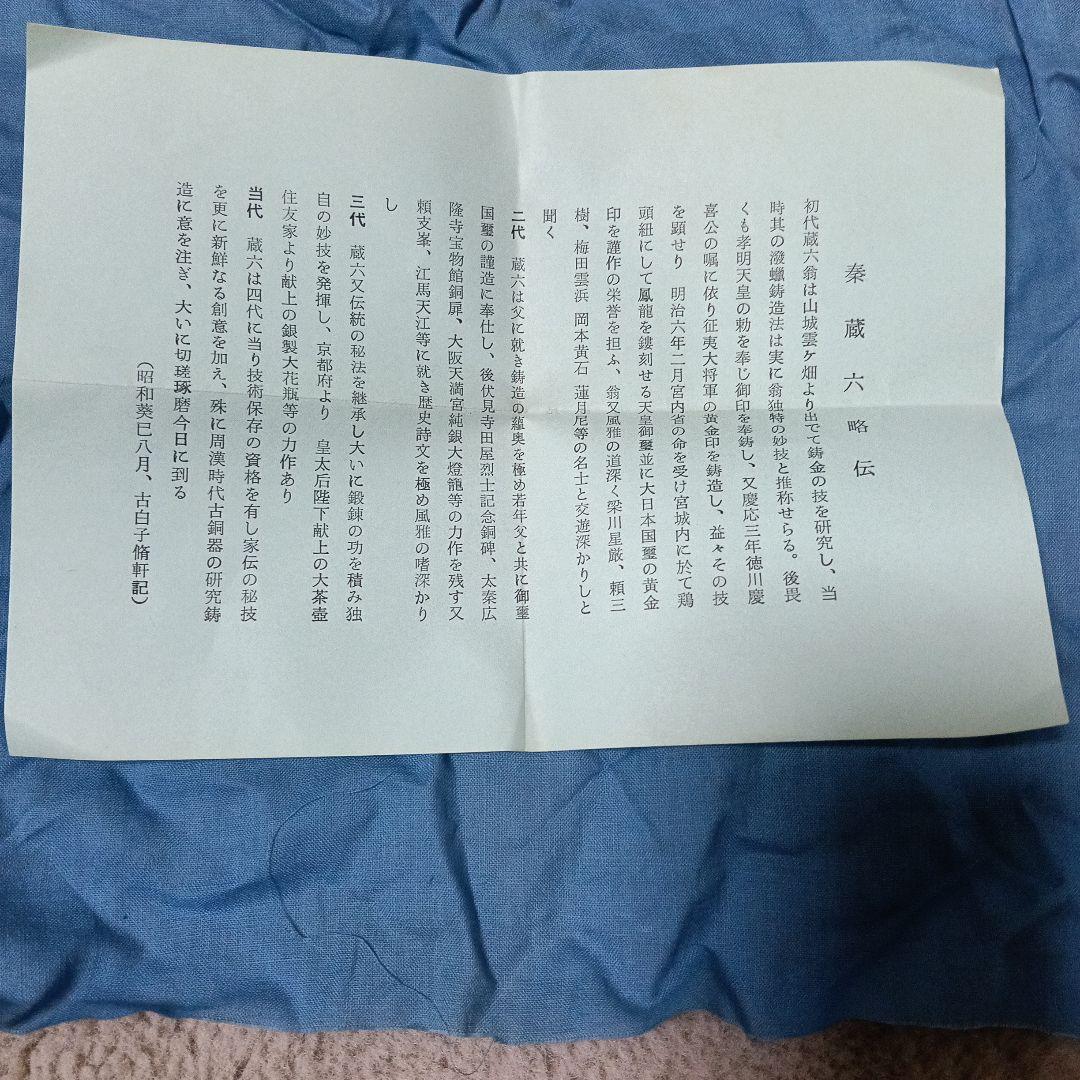 秦蔵六略伝
初代蔵六翁は山城雲ケ畑より出でて鋳金の技を研究し、当
時其の溌蠟鋳造法は実に翁独特の妙技と推称せらる。後畏
くも孝明天皇の勅を奉じ御印を奉鋳し、又慶応三年徳川慶
喜公の嘱に依り征夷大将軍の黄金印を鋳造し、益々その技
を顕せり　明治六年二月宮内省の命を受け宮城内に於て鶏
頭紐にして鳳龍を鏤刻せる天皇御璽並に大日本国璽の黄金
印を謹作の栄誉を担ふ、翁又風雅の道深く梁川星厳、頼三
樹、梅田雲浜　岡本黄石　蓮月尼等の名士と交遊深かりしと
聞く
二代　蔵六は父に就き鋳造の蘊奥を極め若年父と共に御璽
国璽の謹造に奉仕し、後伏見寺田屋烈士記念銅碑、太秦広
隆寺宝物館銅扉、大阪天満宮純銀大燈籠等の力作を残す又
頼支峯、江馬天江等に就き歴史詩文を極め風雅の嗜深かり
し
三代　蔵六又伝統の秘法を継承し大いに鍛錬の功を積み独
自の妙技を発揮し、京都府より　皇太后陛下献上の大茶壺
住友家より献上の銀製大花瓶等の力作あり
当代　蔵六は四代に当り技術保存の資格を有し家伝の秘技
を更に新鮮なる創意を加え、殊に周漢時代古銅器の研究鋳
造に意を注ぎ、大いに切瑳琢磨今日に到る
（昭和葵巳八月、古白子脩軒記）